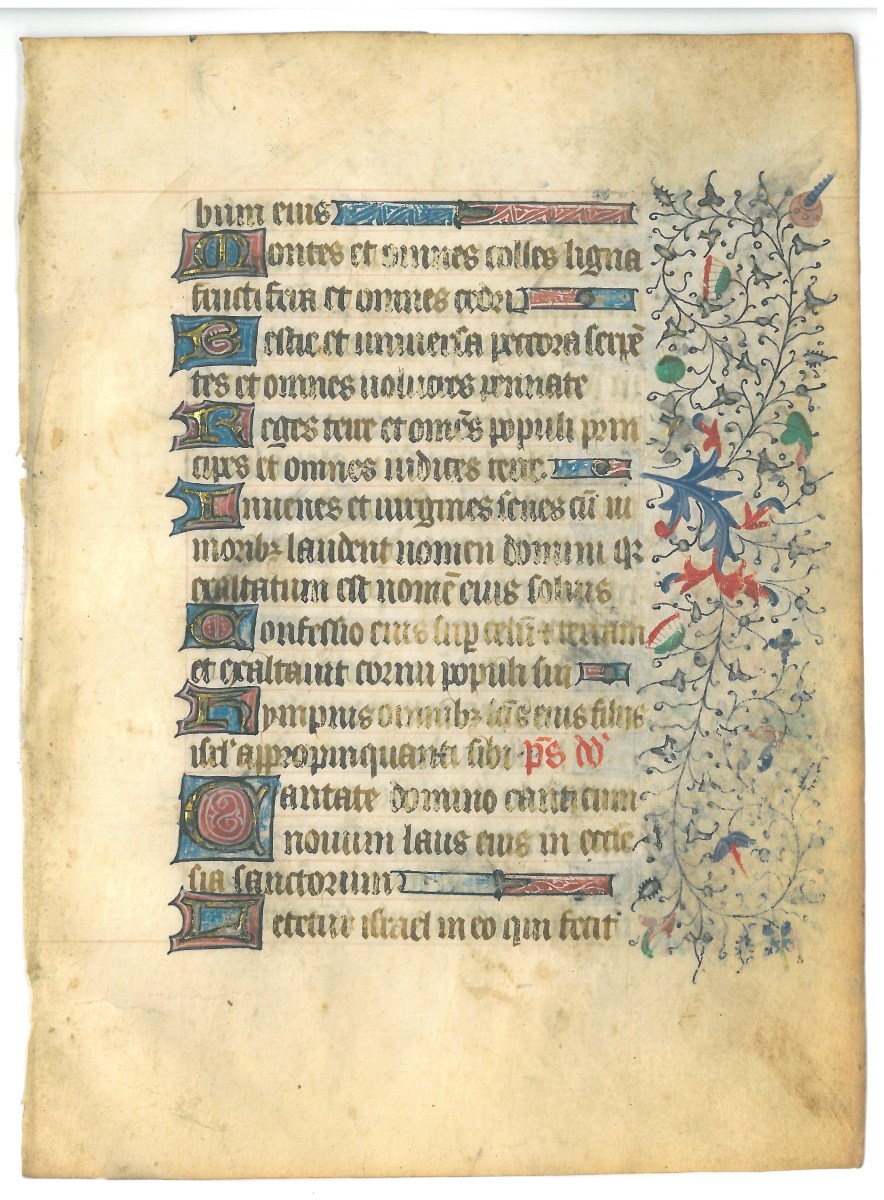 bum eius
Montes et omnes colles ligna
fructifera et omnes cedri
Bestie et universa peccora serpē
tes et omnes uolucres pennate
Reges terre et om̄s populi prin
cipes et omnes iudices terre.
Iuuenes et uirgines senes cū iu
nioribꝫ laudent nomen domini qꝛ
exaltatum est nomē eius solius
Confessio eius sup̱ celum ⁊ terram
et exaltauit cornu populi sui
Hympnus omnibꝫ sc̄is eius filijs
isrl' appropinquanti sibi p̄s dd'
Cantate domino canticum
nouum laus eius in eccle
sia sanctorum
Letetur israel in eo qui fecit